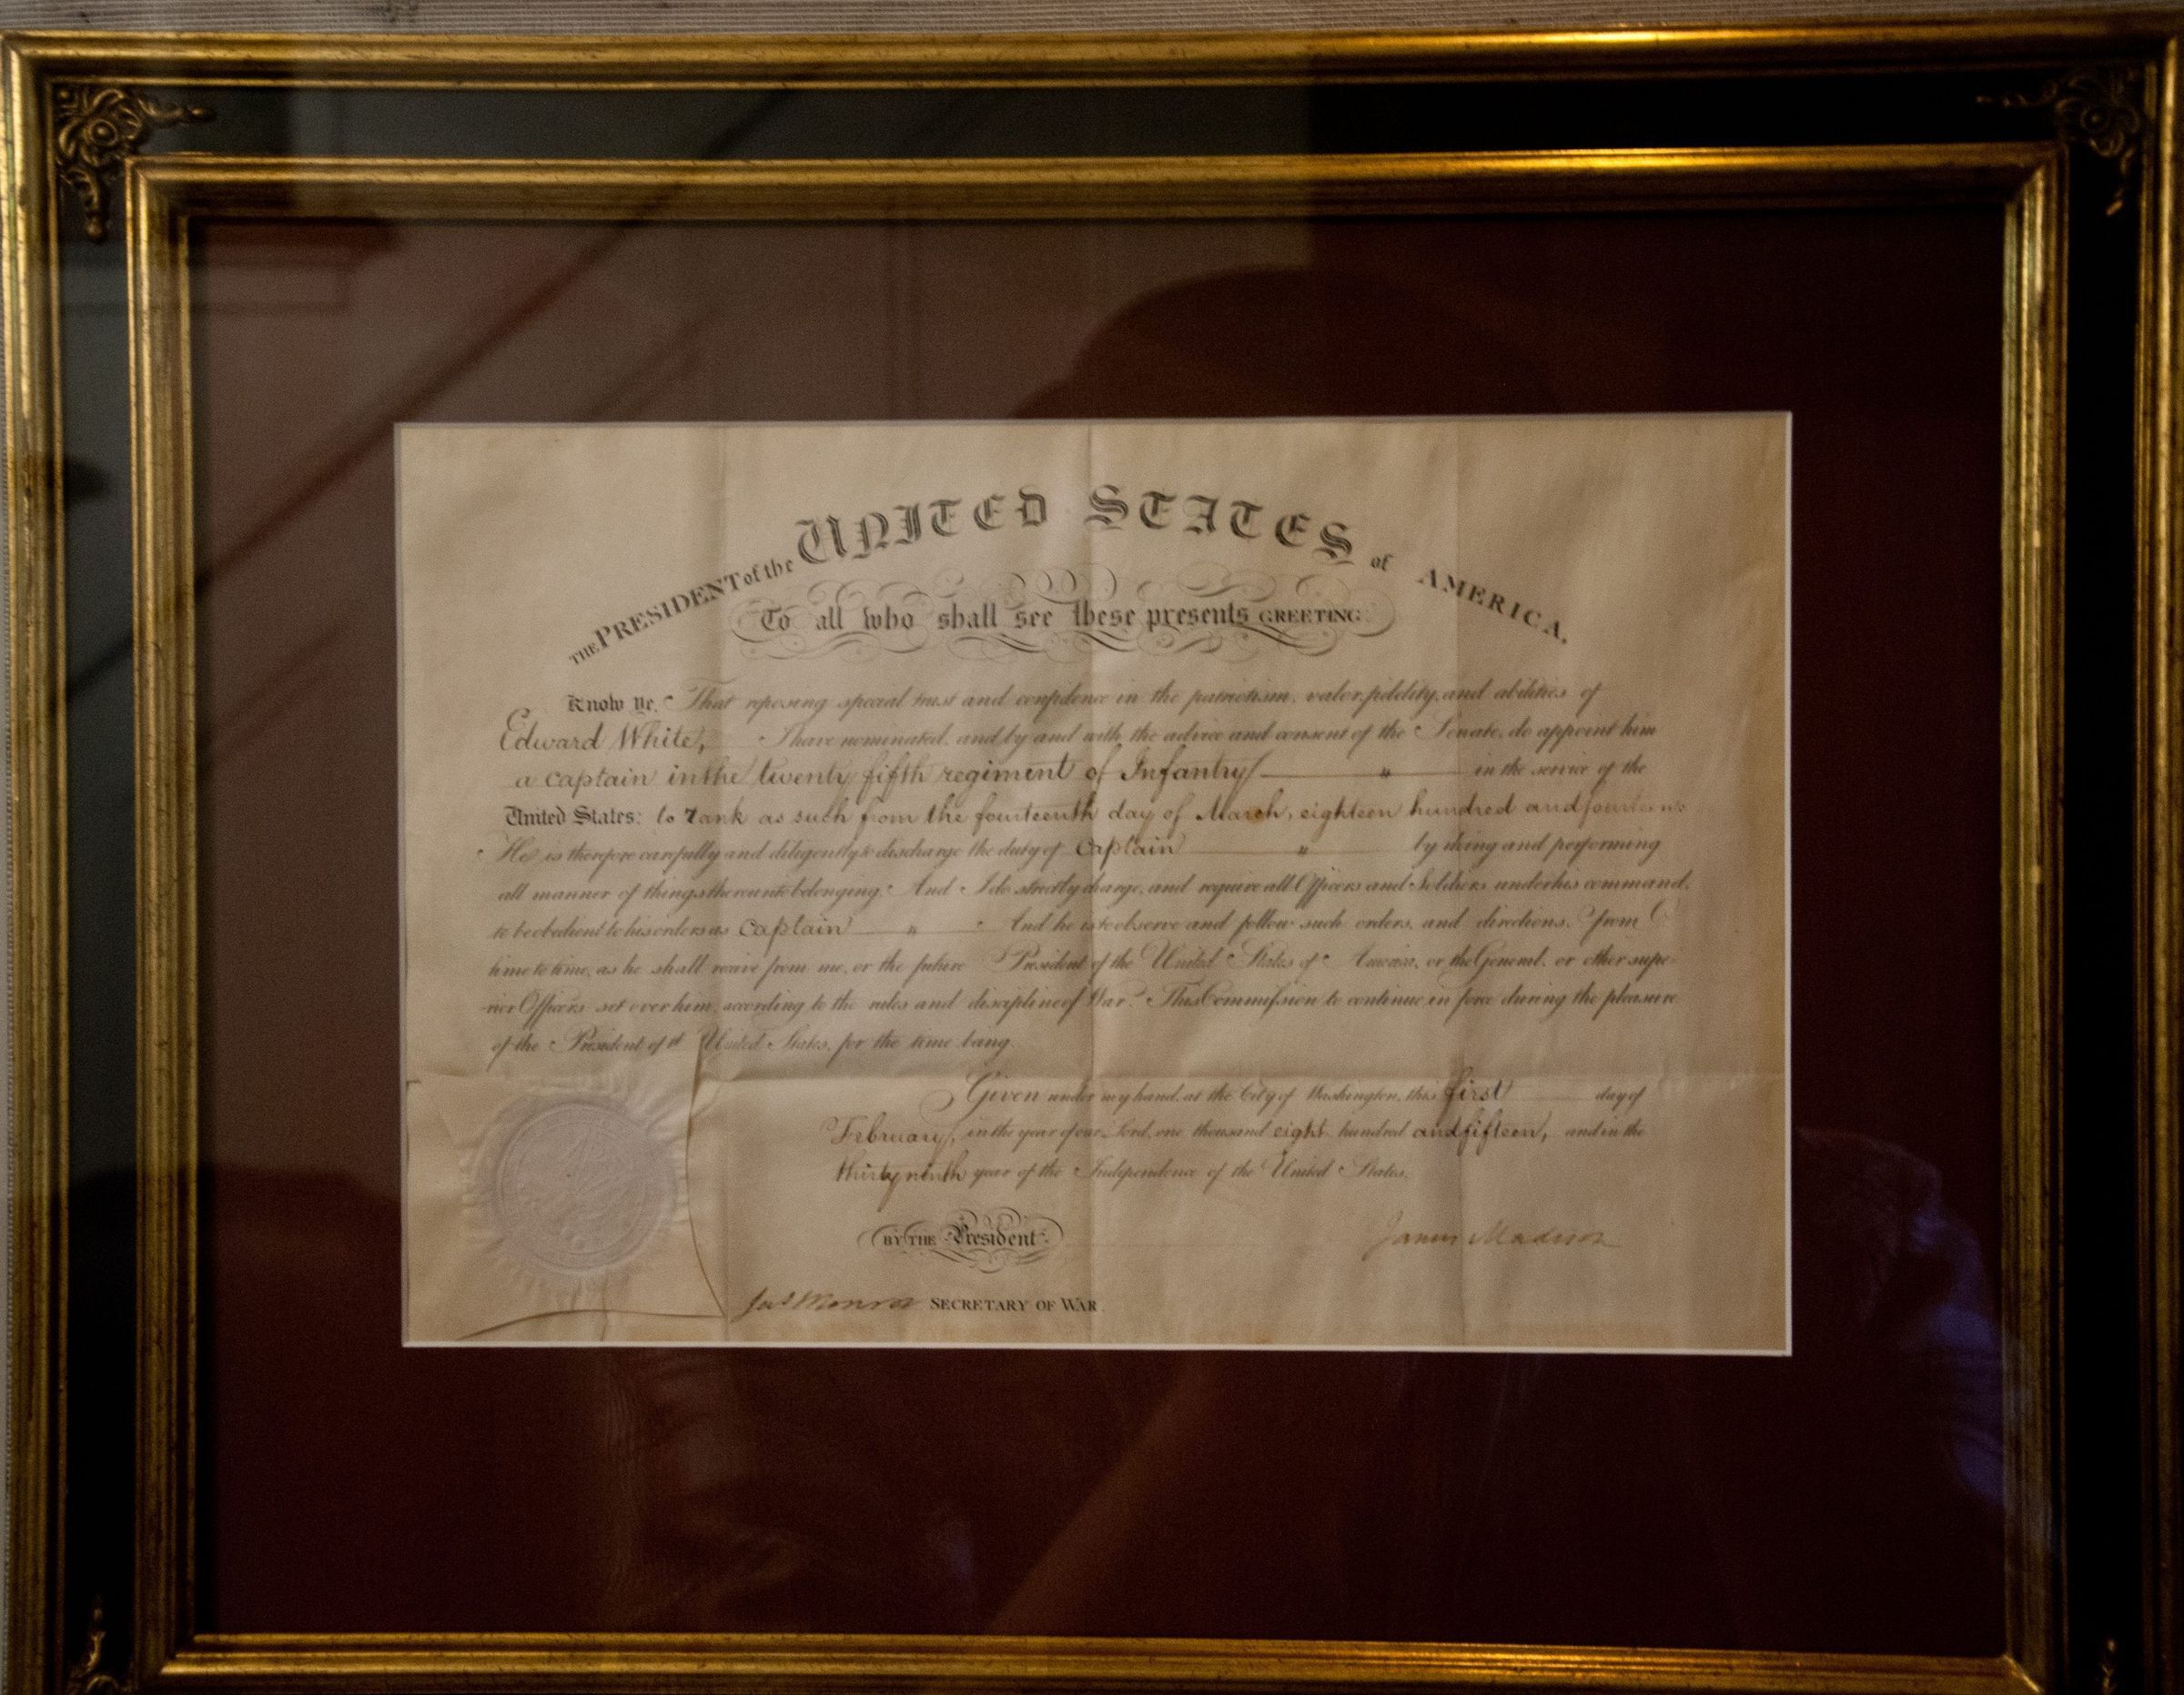 THE PRESIDENT of the UNITED STATES of AMERICA.
To all who shall see these presents GREETING:
Know ye, That reposing special trust and confidence in the patriotism, valor, fidelity, and abilities of
Edward White, I have nominated, and by and with the advice and consent of the Senate, do appoint him
a captain in the twenty fifth regiment of Infantry " in the service of the
United States: to rank as such from the fourteenth day of March, eighteen hundred and fourteen.
He is therefore carefully and diligently to discharge the duty of captain " by doing and performing
all manner of things thereunto belonging. And I do strictly charge, and require all Officers and Soldiers under his command,
to be obedient to his orders as captain " And he is to observe and follow such orders, and directions, from
time to time, as he shall receive from me, or the future President of the United States of America, or the General, or other supe-
rior Officers set over him, according to the rules and discipline of War. This Commission to continue in force during the pleasure
of the President of the United States, for the time being.
Given under my hand, at the City of Washington, this first day of
February, in the year of our Lord, one thousand eight hundred and fifteen, and in the
thirty ninth year of the Independence of the United States.
BY THE President: James Madison
Jas Monroe SECRETARY OF WAR